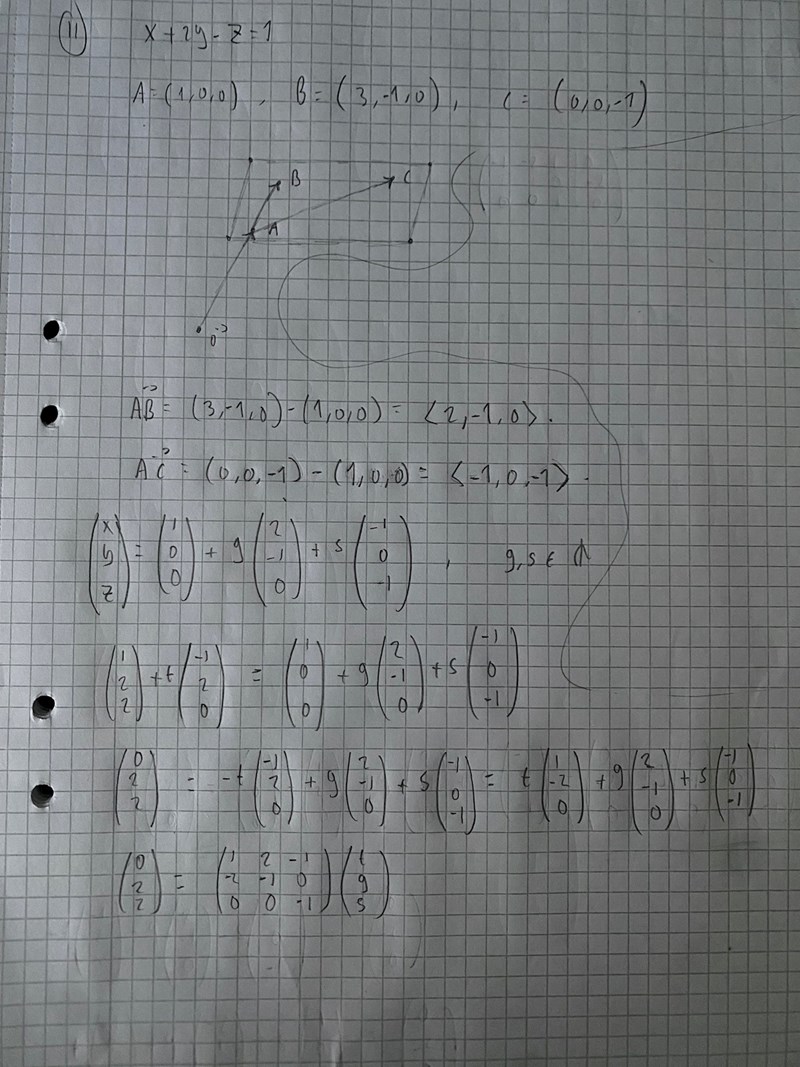 11 x+2y-z=1
A=(1,0,0), B=(3,-1,0), C=(0,0,-1)
B C
A
0⃗
AB⃗ = (3,-1,0)-(1,0,0) = <2,-1,0>.
AC⃗ = (0,0,-1)-(1,0,0) = <-1,0,-1>.
(x y z) = (1 0 0) + g (2 -1 0) + s (-1 0 -1), g,s ∈ ℝ
(1 2 2) + t (-1 2 0) = (1 0 0) + g (2 -1 0) + s (-1 0 -1)
(0 2 2) = -t (-1 2 0) + g (2 -1 0) + s (-1 0 -1) = t (1 -2 0) + g (2 -1 0) + s (-1 0 -1)
(0 2 2) = (1 2 -1 -2 -1 0 0 0 -1) (t g s)